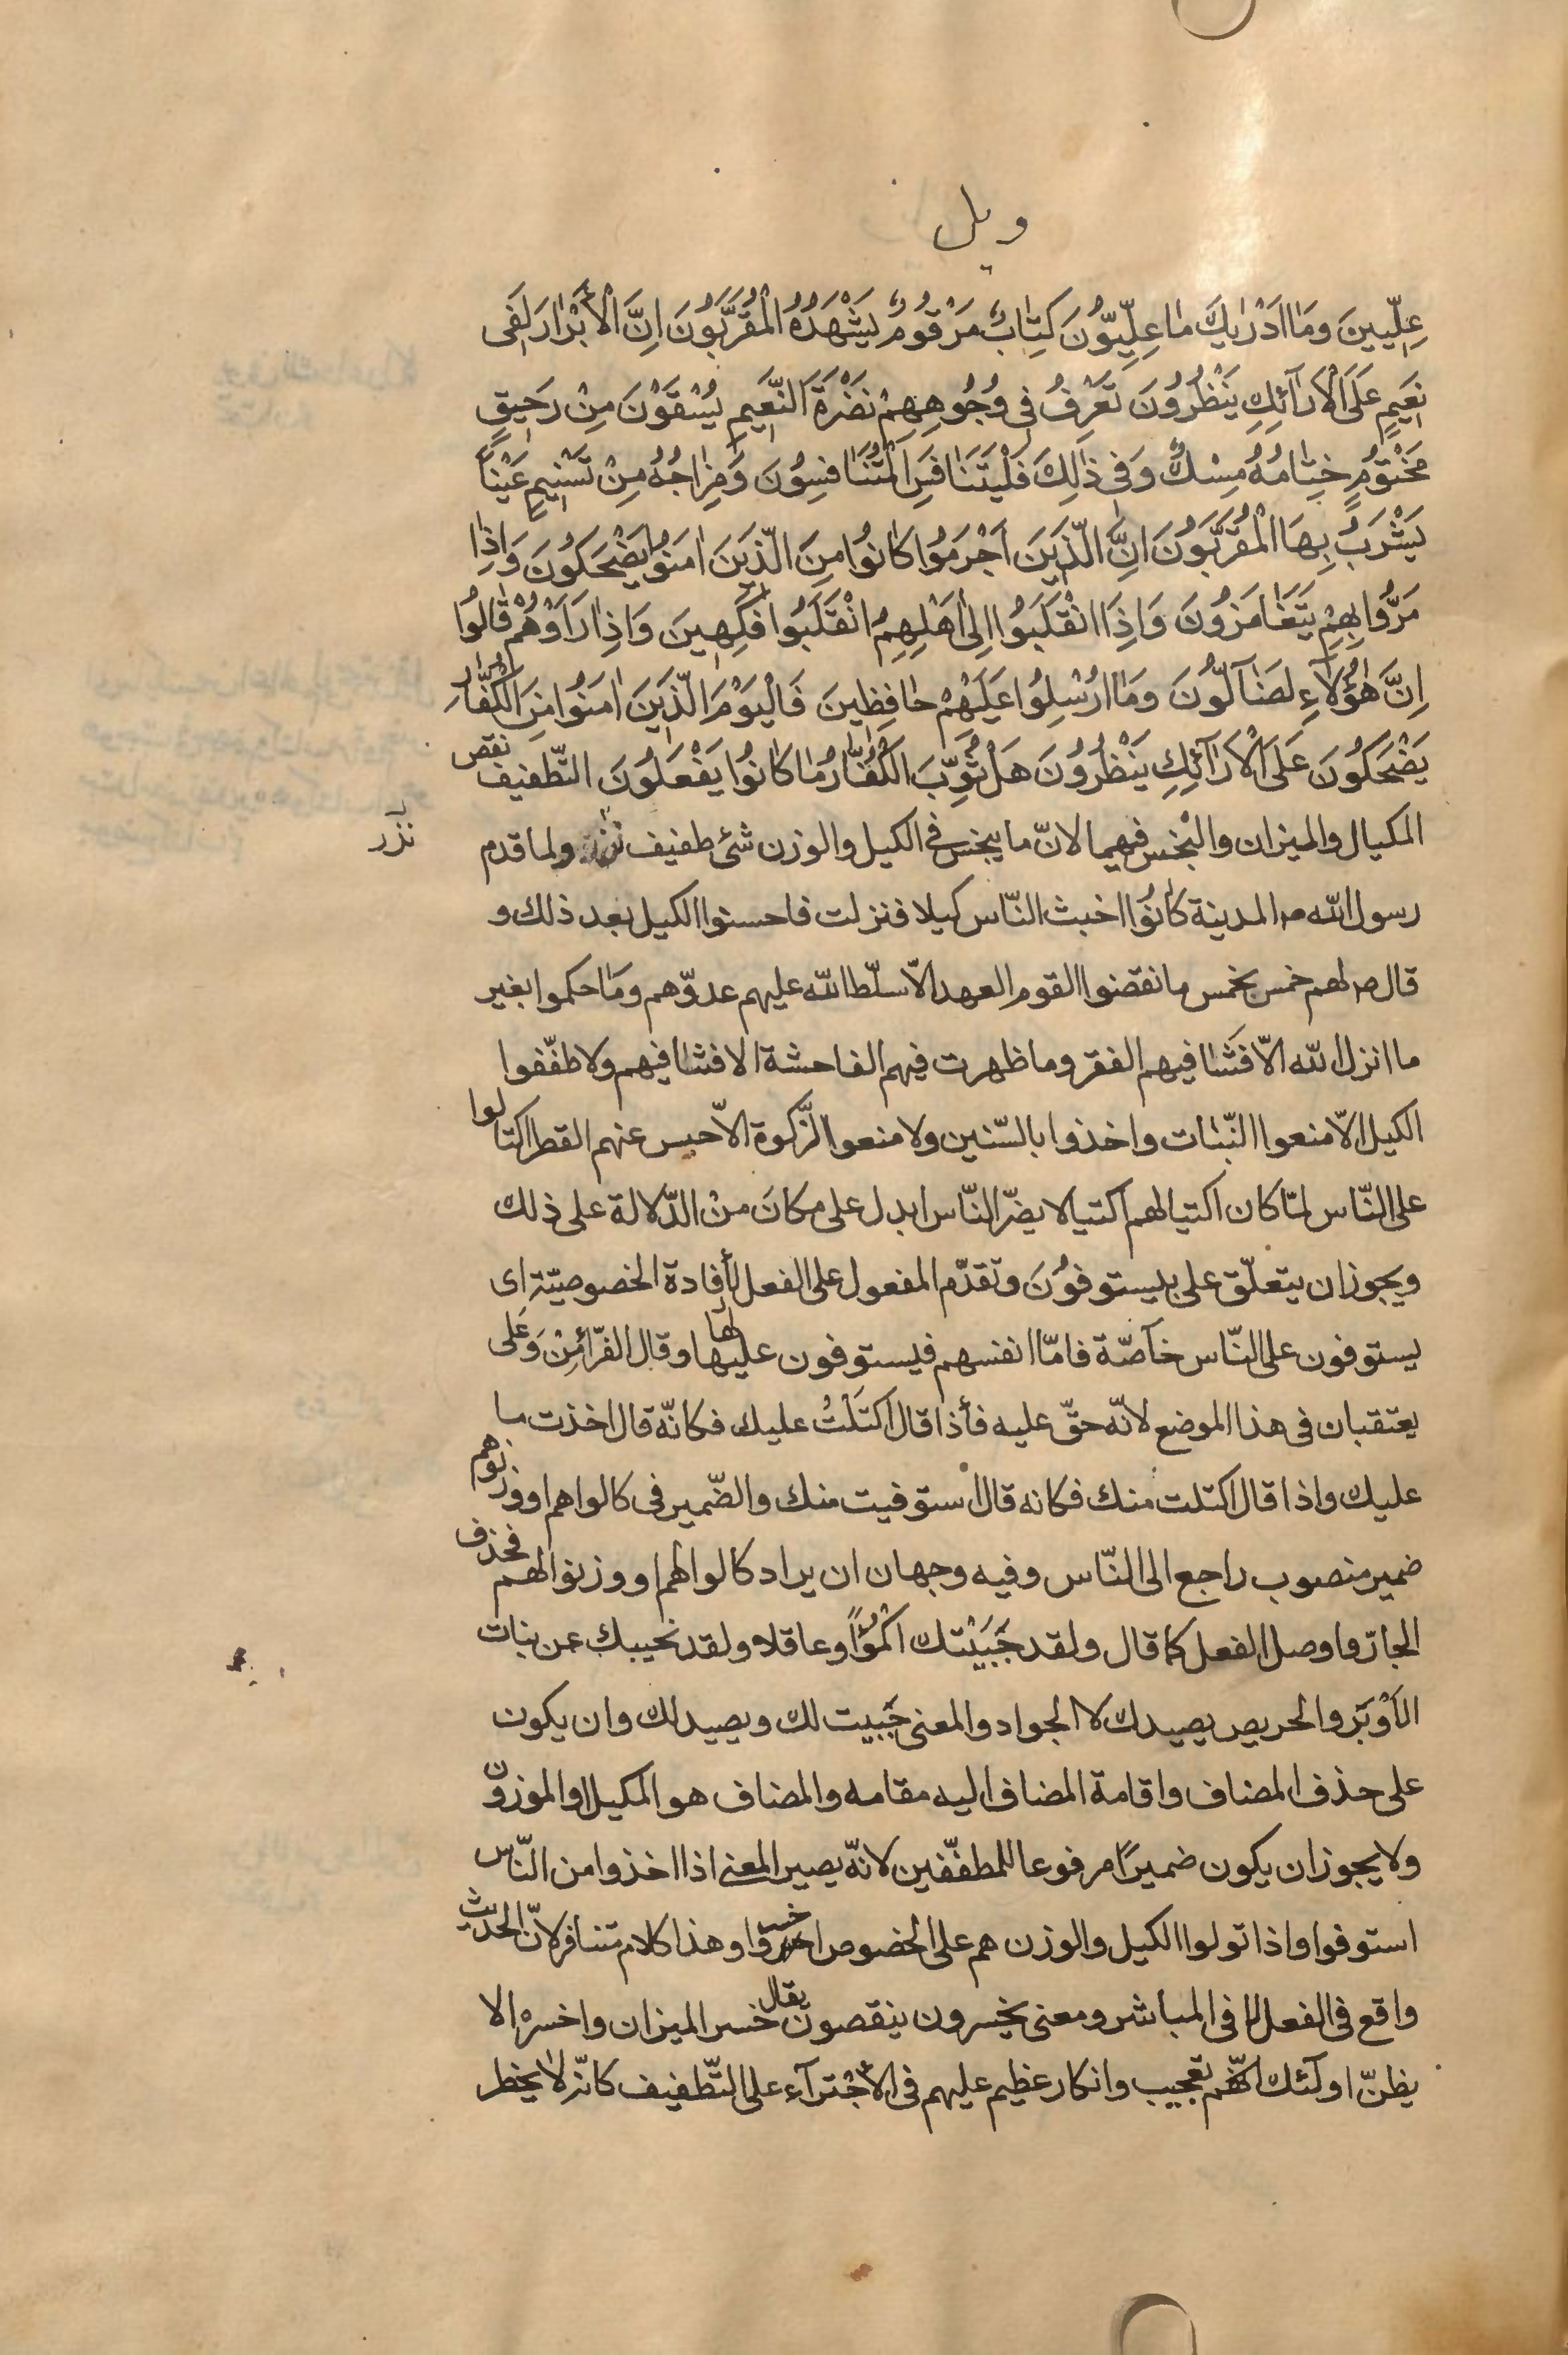 ويل
عِلِّيينَ وَمَا اَدْرٰيكَ مٰا عِلِّيّوُنَ كِتٰابٌ مَرْقُومٌ يَشْهَدُهُ الْمُقَرَّبُونَ اِنَّ الْأَبْرٰارَ لَفٖى
نَعٖيمٍ عَلَى الْاَرٰآئِكِ يَنْظُرُونَ تَعْرِفُ فٖى وُجُوهِهِمْ نَضْرَةَ النَّعٖيمِ يُسْقَوْنَ مِنْ رَحٖيقٍ
مَخْتُومٍ خِتٰامُهُ مِسْكٌ وَفٖى ذٰلِكَ فَلْيَتَنٰافَسِ الْمُتَنٰافِسُونَ وَمِزٰاجُهُ مِنْ تَسْنٖيمٍ عَيْناً
يَشْرَبُ بِهَا الْمُقَرَّبُونَ اِنَّ الَّذٖينَ اَجْرَمُوا كٰانُوا مِنَ الَّذٖينَ اٰمَنُوا يَضْحَكُونَ وَاِذٰا
مَرُّوا بِهِمْ يَتَغٰامَزُونَ وَاِذَا انْقَلَبُوا اِلٰى اَهْلِهِمُ انْقَلَبُوا فَكِهٖينَ وَاِذٰا رَاَوْهُمْ قٰالُوا
اِنَّ هٰؤُلٰاءِ لَضٰآلُّونَ وَمٰا اُرْسِلُوا عَلَيْهِمْ حٰافِظٖينَ فَالْيَوْمَ الَّذٖينَ اٰمَنُوا مِنَ الْكُفّٰارِ
يَضْحَكُونَ عَلَى الْاَرٰآئِكِ يَنْظُرُونَ هَلْ ثُوِّبَ الْكُفّٰارُ مٰا كٰانُوا يَفْعَلُونَ التّطفيف نقص
المكيال والميزان والبْخس فيهما لانّ ما يبخس في الكيل والوزن شئ طفيف نزر ولما قدم
نزر
رسول الله ص المدينة كٰانُوا اخبث النّاس كيلا فنزلت فاحسنوا الكيل بعد ذلك و
قال ص لهم خمس بخمس ما نقضوا القوم العهد الاّ سلّط الله عليهم عدوّهم ومٰا حكموا بغير
ما انزل الله الاّ فَشٰا فيهم الفقر وما ظهرت فيهم الفاحشة الا فشٰا فيهم ولا طفّفوا
الكيل الاّ منعوا النّبٰات واخذوا بالسّنين ولا منعوا الزّكوة الاّ حبس عنهم القطر اكتالوا
على النّاس لمّا كان اكتيالهم اكتيالا يضرّ النّاس ابدل على مكانَ منْ الدّلالة على ذلك
ويجوز ان يتعلّق على بليستوفوُنَ وتقدّم المفعول على الفعل لأفادة الخصوصيّة اى
يستوفون على النّاس خآصّة فامّا انفسهم فيستوفون عليها لها وقال الفرّاء مِنْ وَعَلى
يعتقبان فى هذا الموضع لانّه حقّ عليه فأذا قال اكتَلْتُ عليك فكانّه قال اخذت ما
عليك واذا قال اكتلت منك فكانه قال استوفيت منك والضّمير فى كالوا هم او وزنوهم
ضمير منصوب راجع الى النّاس وفيه وجهان ان يراد كالوا لهم او وزنوا لهم فحذف
الجارّ واوصل الفعل كما قال ولقد جَبَيْتك اكْمُؤاً وعاقلا ولقد نحيبك عن بنات
الأوْبَر والحريص يصيدك لا الجواد والمعنى جَبيت لك ويصيد لك وان يكون
على حذف المضاف واقامة المضاف اليه مقامه والمضاف هو المكيل او الموزون
ولا يجوز ان يكون ضميرًا مرفوعا للمطفّفين لانّه يصير المعنى اذا اخذوا من النّاس
استوفوا واذا تولوا الكيل والوزن هم على الخصوص اخسروا وهذا كلام متنافر لانّ الحديث
واقع فى الفعل لا فى المباشر ومعنى يخسرون ينقصون يقال خسر الميزان واخسره الا
يظنّ اولٓئك انّهم تعجيب وانكار عظيم عليهم فى الاجْترآء على التّطفيف كانّه لا يخطر